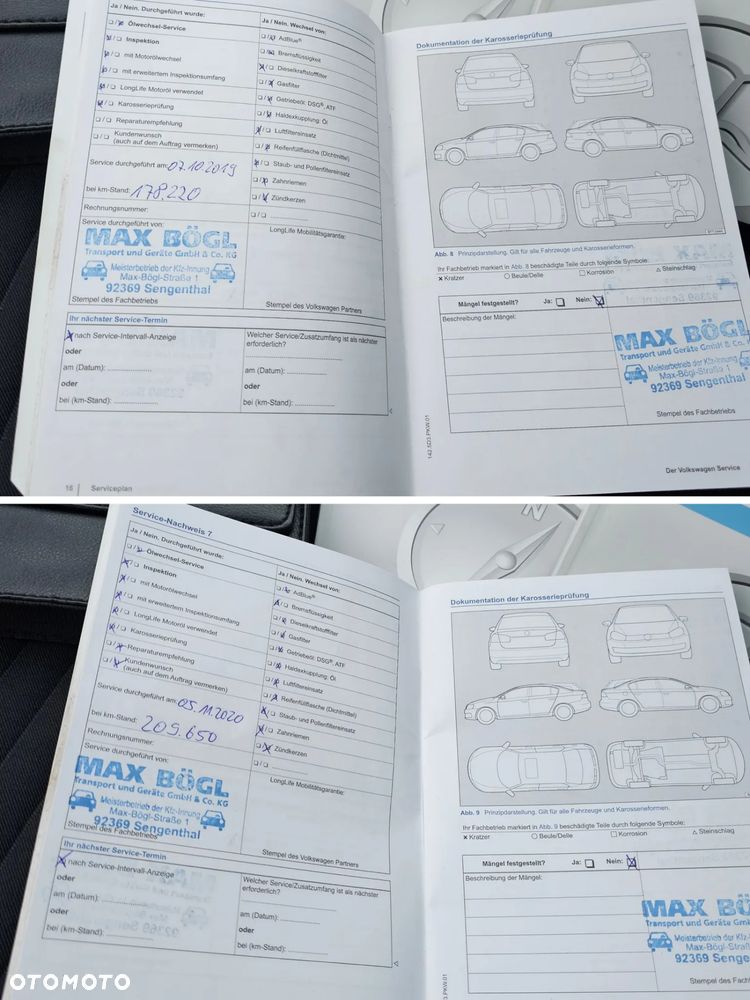 Ja / Nein. Durchgeführt wurde:
Ölwechsel-Service
Inspektion
mit Motorölwechsel
mit erweitertem Inspektionsumfang
LongLife Motoröl verwendet
Karosserieprüfung
Reparaturempfehlung
Kundenwunsch
(auch auf dem Auftrag vermerken)
Service durchgeführt am: 07.10.2019
bei km-Stand: 178.220
Rechnungsnummer:
Service durchgeführt von:
MAX BÖGL
Transport und Geräte GmbH & Co. KG
Meisterbetrieb der Kfz-Innung
Max-Bögl-Straße 1
92369 Sengenthal
Stempel des Fachbetriebs
Ja / Nein. Wechsel von:
AdBlue®
Bremsflüssigkeit
Dieselkraftstofffilter
Gasfilter
Getriebeöl: DSG®, ATF
Haldexkupplung: Öl
Luftfiltereinsatz
Reifenfüllflasche (Dichtmittel)
Staub- und Pollenfiltereinsatz
Zahnriemen
Zündkerzen
LongLife Mobilitätsgarantie:
Stempel des Volkswagen Partners
Ihr nächster Service-Termin
nach Service-Intervall-Anzeige
oder
am (Datum):
oder
bei (km-Stand):
Welcher Service/Zusatzumfang ist als nächster
erforderlich?
am (Datum):
oder
bei (km-Stand):
16 | Serviceplan
Dokumentation der Karosserieprüfung
Abb. 8 Prinzipdarstellung. Gilt für alle Fahrzeuge und Karosserieformen.
Ihr Fachbetrieb markiert in Abb. 8 beschädigte Teile durch folgende Symbole:
× Kratzer ○ Beule/Delle □ Korrosion △ Steinschlag
Mängel festgestellt? Ja: Nein:
Beschreibung der Mängel:
MAX BÖGL
Transport und Geräte GmbH & Co.
Meisterbetrieb der Kfz-Innung
Max-Bögl-Straße 1
92369 Sengenthal
Stempel des Fachbetriebs
142.5D3.PKW.01
Der Volkswagen Service
Service-Nachweis 7
Ja / Nein. Durchgeführt wurde:
Ölwechsel-Service
Inspektion
mit Motorölwechsel
mit erweitertem Inspektionsumfang
LongLife Motoröl verwendet
Karosserieprüfung
Reparaturempfehlung
Kundenwunsch
(auch auf dem Auftrag vermerken)
Service durchgeführt am: 05.11.2020
bei km-Stand: 209.650
Rechnungsnummer:
Service durchgeführt von:
MAX BÖGL
Transport und Geräte GmbH & Co. KG
Meisterbetrieb der Kfz-Innung
Max-Bögl-Straße 1
92369 Sengenthal
Stempel des Fachbetriebs
Ja / Nein. Wechsel von:
AdBlue®
Bremsflüssigkeit
Dieselkraftstofffilter
Gasfilter
Getriebeöl: DSG®, ATF
Haldexkupplung: Öl
Luftfiltereinsatz
Reifenfüllflasche (Dichtmittel)
Staub- und Pollenfiltereinsatz
Zahnriemen
Zündkerzen
LongLife Mobilitätsgarantie:
Stempel des Volkswagen Partners
Ihr nächster Service-Termin
nach Service-Intervall-Anzeige
oder
am (Datum):
oder
bei (km-Stand):
Welcher Service/Zusatzumfang ist als nächster
erforderlich?
am (Datum):
oder
bei (km-Stand):
N
Dokumentation der Karosserieprüfung
Abb. 9 Prinzipdarstellung. Gilt für alle Fahrzeuge und Karosserieformen.
Ihr Fachbetrieb markiert in Abb. 9 beschädigte Teile durch folgende Symbole:
× Kratzer ○ Beule/Delle □ Korrosion △ Steinschlag
Mängel festgestellt? Ja: Nein:
Beschreibung der Mängel:
MAX BÖ
Transport und Geräte Gmb
Meisterbetrieb der Kfz-
Max-Bögl-Straße
92369 Senge
Stempel des Fach
3.PKW.01
OTOMOTO